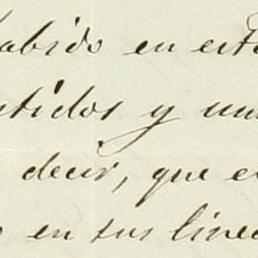 abido en est
stidos y un
decir, que e
en sus line